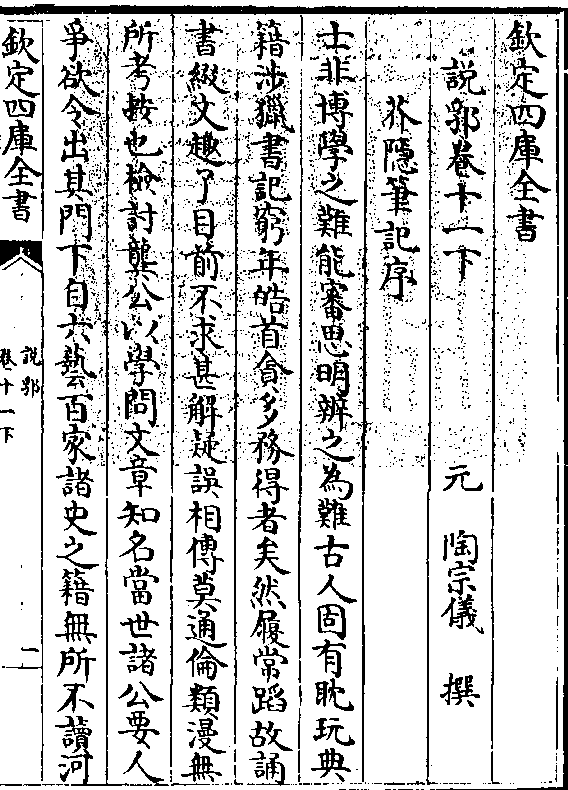 欽定四庫全書
説郛卷十一下
元 陶宗儀 撰
芥隱筆記序
士非博學之難能審思明辨之為難古人固有耽玩典
籍涉獵書記窮年皓首貪多務得者矣然履常蹈故誦
書綴文趣了目前不求甚解疑誤相傳莫通倫類漫無
所考按也檢討龔公以學問文章知名當世諸公要人
爭欲令出其門下自六藝百家諸史之籍無所不讀河
欽定四庫全書
説郛
卷十一下
一